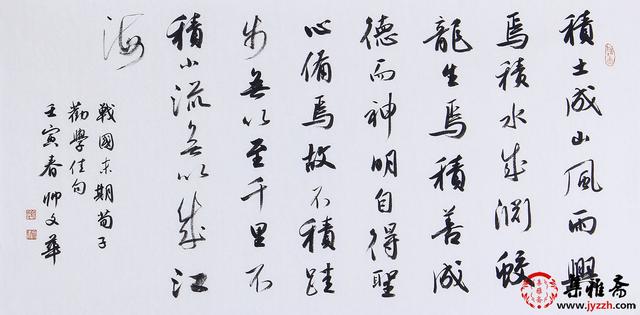 積土成山風雨興
焉積水成淵蛟
龍生焉積善成
德而神明自得聖
心備焉故不積跬
步無以至千里不
積小流無以成江
海
戰國末期荀子
勸學佳句
壬寅春帅文華
集雅斋
集雅斋
www.jyzzh.com